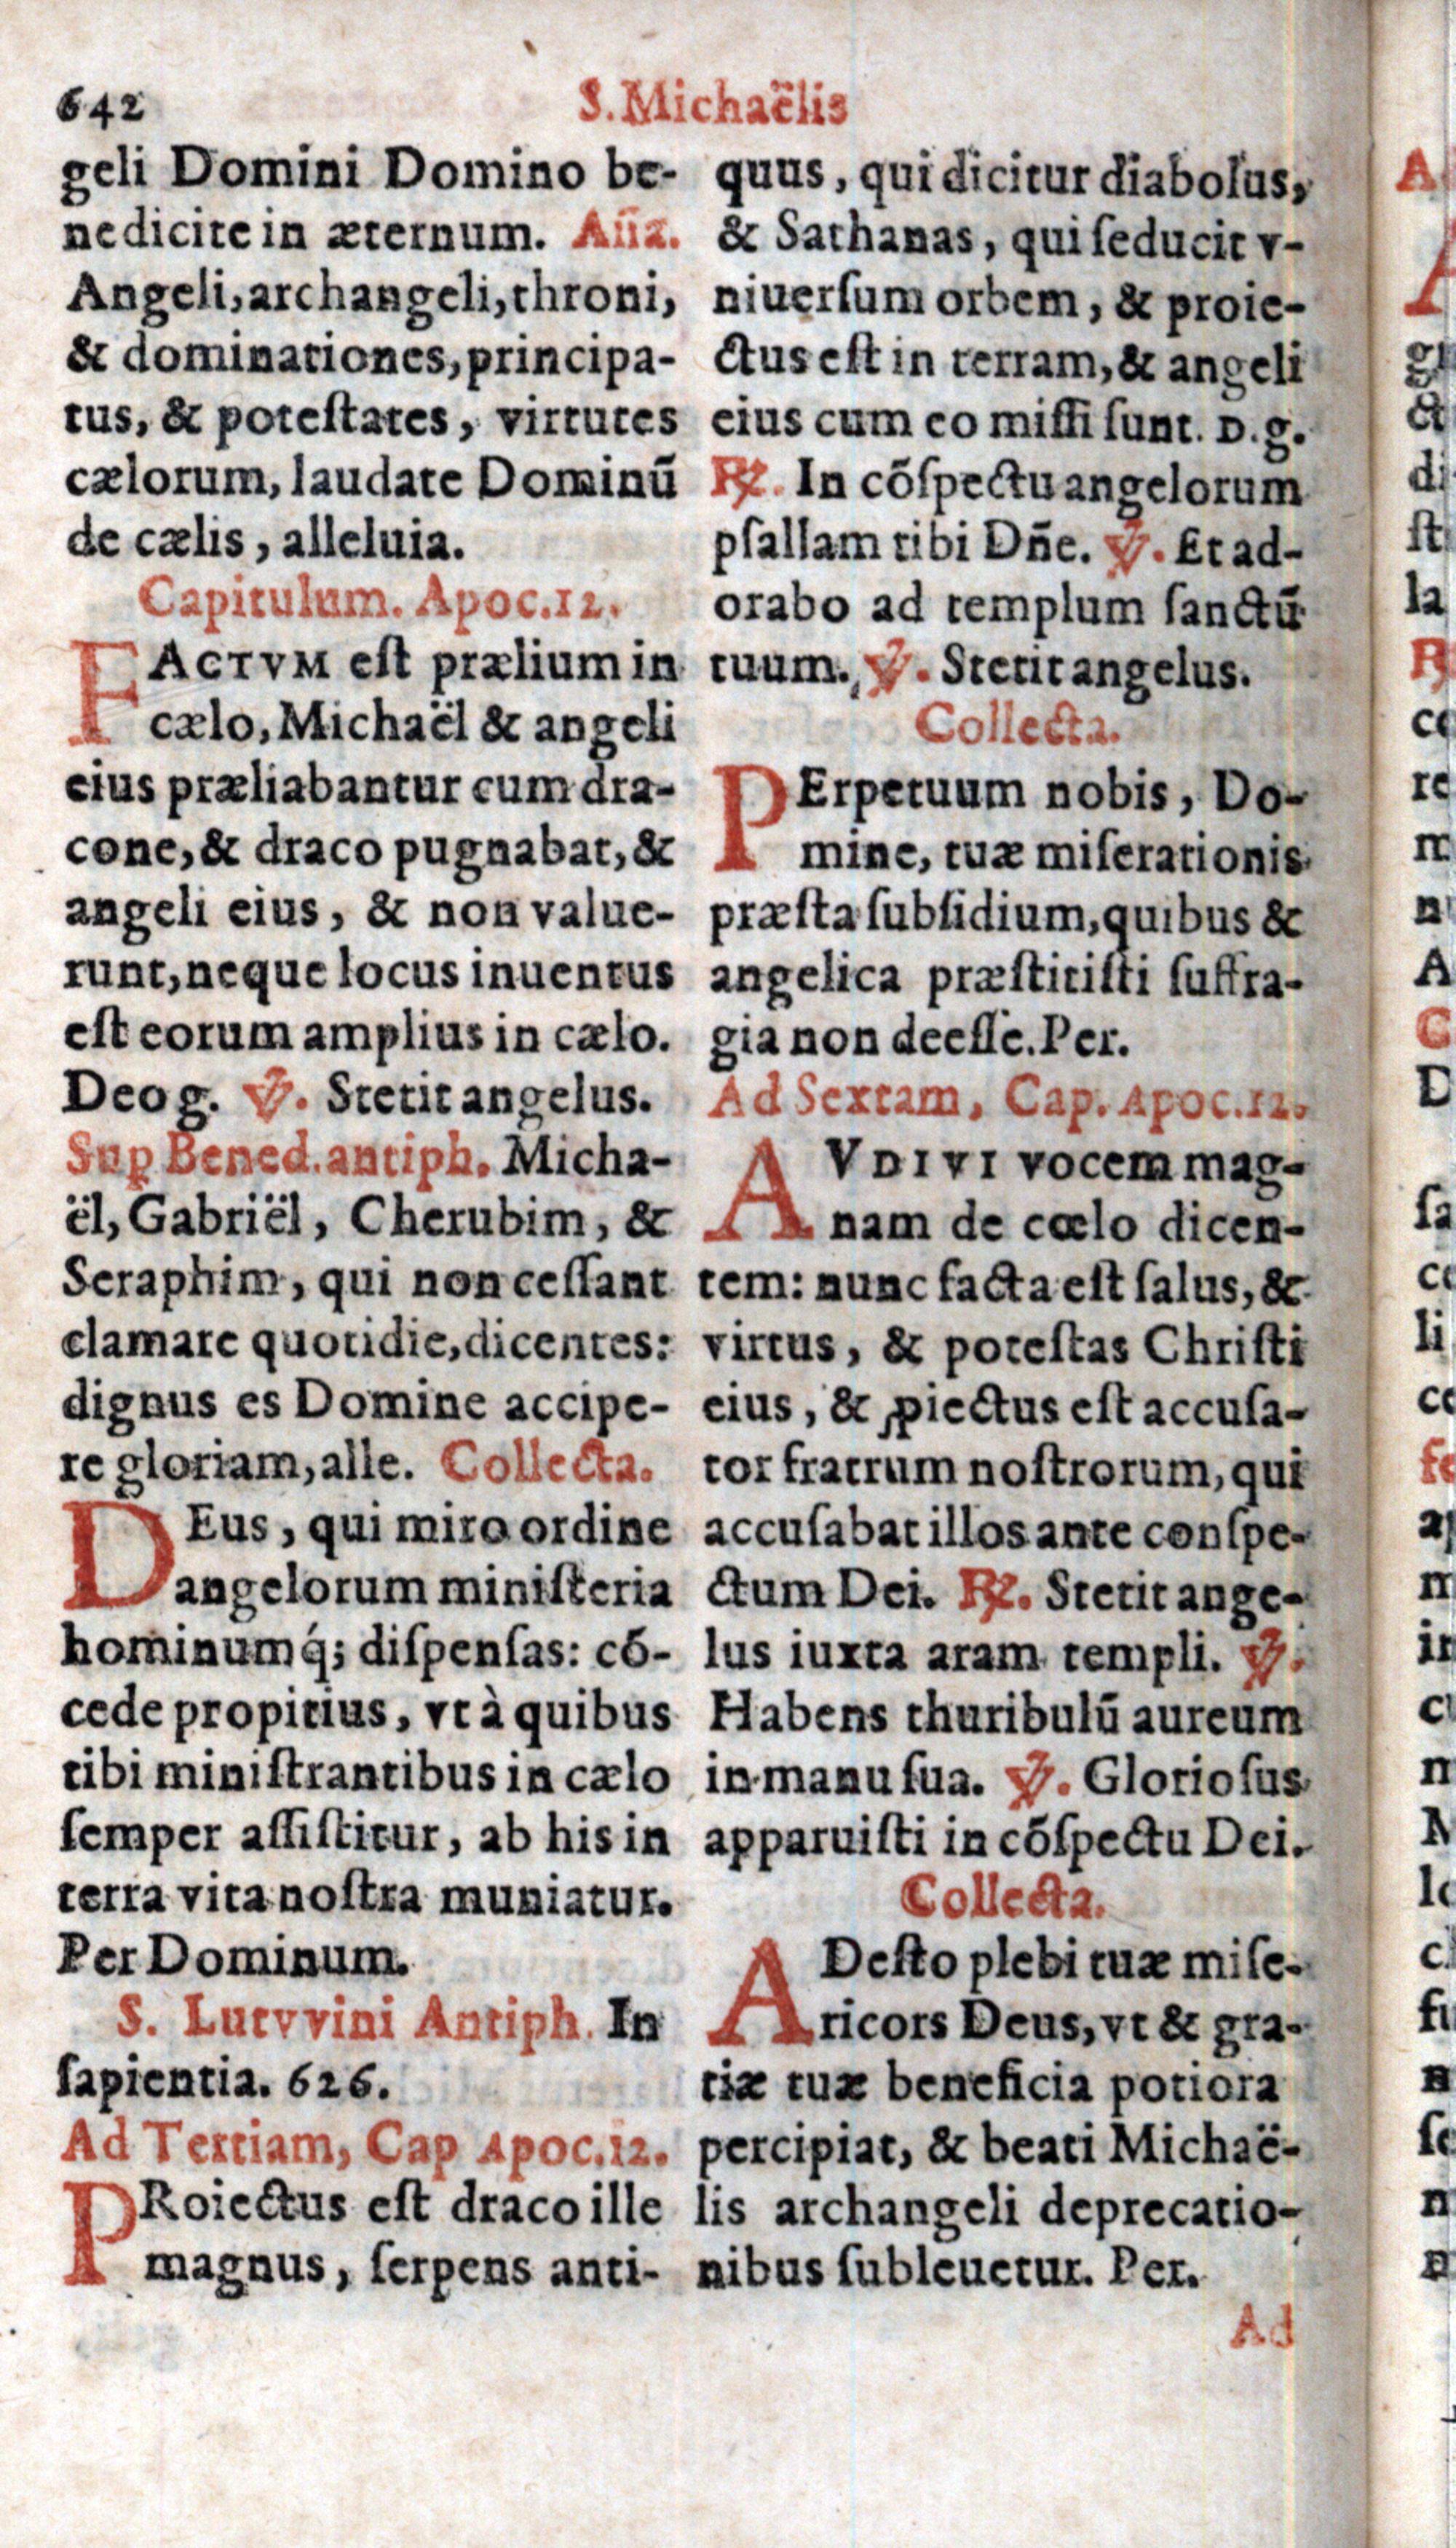 642
S. Michaëlis
geli Domini Domino be-
nedicite in æternum. Aña.
Angeli, archangeli, throni,
& dominationes, principa-
tus, & poteſtates, virtutes
cælorum, laudate Dominū
de cælis, alleluia.
Capitulum. Apoc.12.
FACTVM eſt prælium in
cælo, Michaël & angeli
eius præliabantur cum dra-
cone, & draco pugnabat, &
angeli eius, & non value-
runt, neque locus inuentus
eſt eorum amplius in cælo.
Deo g. ℣. Stetit angelus.
Sup Bened. antiph. Micha-
ël, Gabriël, Cherubim, &
Seraphim, qui non ceſſant
clamare quotidie, dicentes:
dignus es Domine accipe-
re gloriam, alle. Collecta.
DEus, qui miro ordine
angelorum miniſteria
hominumq́; diſpenſas: cō-
cede propitius, vt à quibus
tibi miniſtrantibus in cælo
ſemper aſſiſtitur, ab his in
terra vita noſtra muniatur.
Per Dominum.
S. Lutvvini Antiph. In
ſapientia. 626.
Ad Tertiam, Cap Apoc.12.
PRoiectus eſt draco ille
magnus, ſerpens anti-
quus, qui dicitur diabolus,
& Sathanas, qui ſeducit v-
niuerſum orbem, & proie-
ctus eſt in terram, & angeli
eius cum eo miſſi ſunt. D. g.
℟. In cōſpectu angelorum
pſallam tibi Dñe. ℣. Et ad-
orabo ad templum ſanctū
tuum. ℣. Stetit angelus.
Collecta.
PErpetuum nobis, Do-
mine, tuæ miſerationis
præſta ſubſidium, quibus &
angelica præſtitiſti ſuffra-
gia non deeſſe. Per.
Ad Sextam, Cap. Apoc.12.
AVDIVI vocem mag-
nam de cœlo dicen-
tem: nunc facta eſt ſalus, &
virtus, & poteſtas Chriſti
eius, & ꝓiectus eſt accuſa-
tor fratrum noſtrorum, qui
accuſabat illos ante conſpe-
ctum Dei. ℟. Stetit ange-
lus iuxta aram templi. ℣.
Habens thuribulū aureum
in manu ſua. ℣. Glorioſus
apparuiſti in cōſpectu Dei.
Collecta.
ADeſto plebi tuæ miſe-
ricors Deus, vt & gra-
tiæ tuæ beneficia potiora
percipiat, & beati Michaë-
lis archangeli deprecatio-
nibus ſubleuetur. Per.
Ad